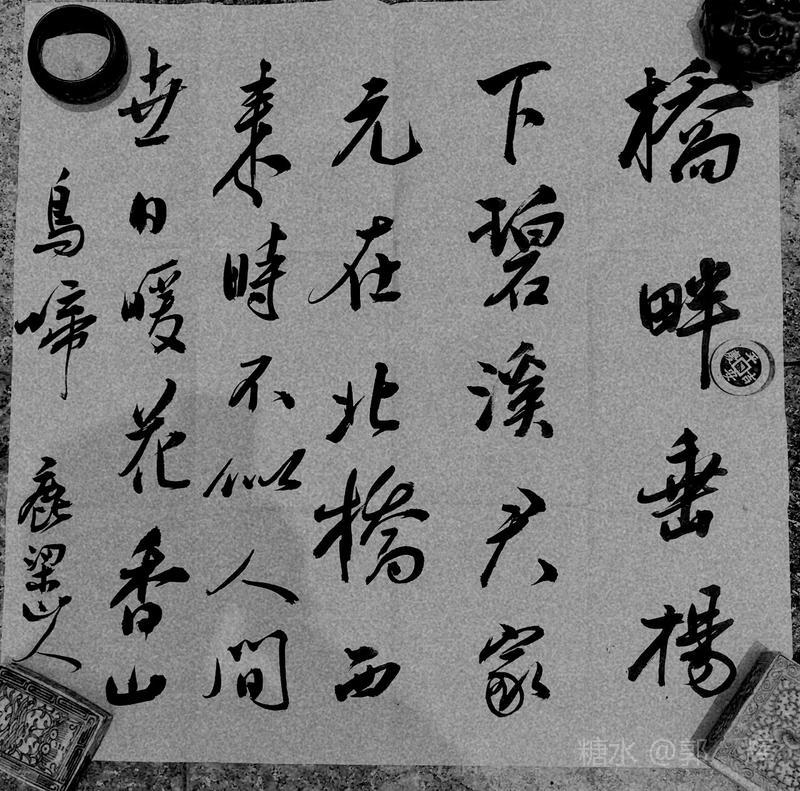 橋畔垂楊
下碧溪君家
元在北橋西
来時不似人間
世日暖花香山
鳥啼
鹿梁山人
糖水 @郭